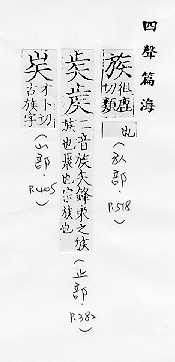 四聲篇海
族徂鹿切類也
(㫃部.P.518)
二音族矢鋒束之族族也聚也宗族也
(止部.P.382)
才卜切古族字
(山部.P.405)